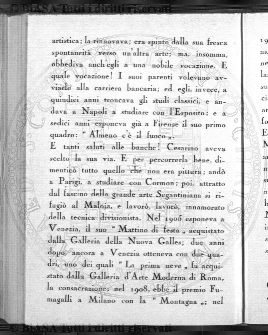 artistica: la rinnovava; era spinto dalla sua fresca
spontaneità verso un'altra arte; ma, insomma,
obbediva anch'egli a una nobile vocazione. E
quale vocazione! I suoi parenti volevano av-
viarlo alla carriera bancaria; ed egli, invece, a
quindici anni troncava gli studi classici, e an-
dava a Napoli a studiare con l'Esposito; e a
sedici anni esponeva già a Firenze il suo primo
quadro: "Almeno c'è il fuoco„.
E tanti saluti alle banche! Cesarino aveva
scelto la sua via. E per percorrerla bene, di-
menticò tutto quello che non era pittura; andò
a Parigi, a studiare con Cormon; poi, attratto
dal fascino della grande arte Segantiniana si ri-
fugiò al Maloja, e lavorò, lavorò, innamorato
della tecnica divisionista. Nel 1906 esponeva a
Venezia, il suo "Mattino di festa„ acquistato
dalla Galleria della Nuova Galles; due anni
dopo, ancora a Venezia otteneva con due qua-
dri, uno dei quali "La prima neve„ fu acqui-
stato dalla Galleria d'Arte Moderna di Roma,
la consacrazione; nel 1908, ebbe il premio Fu-
magalli a Milano con la "Montagna„; nel